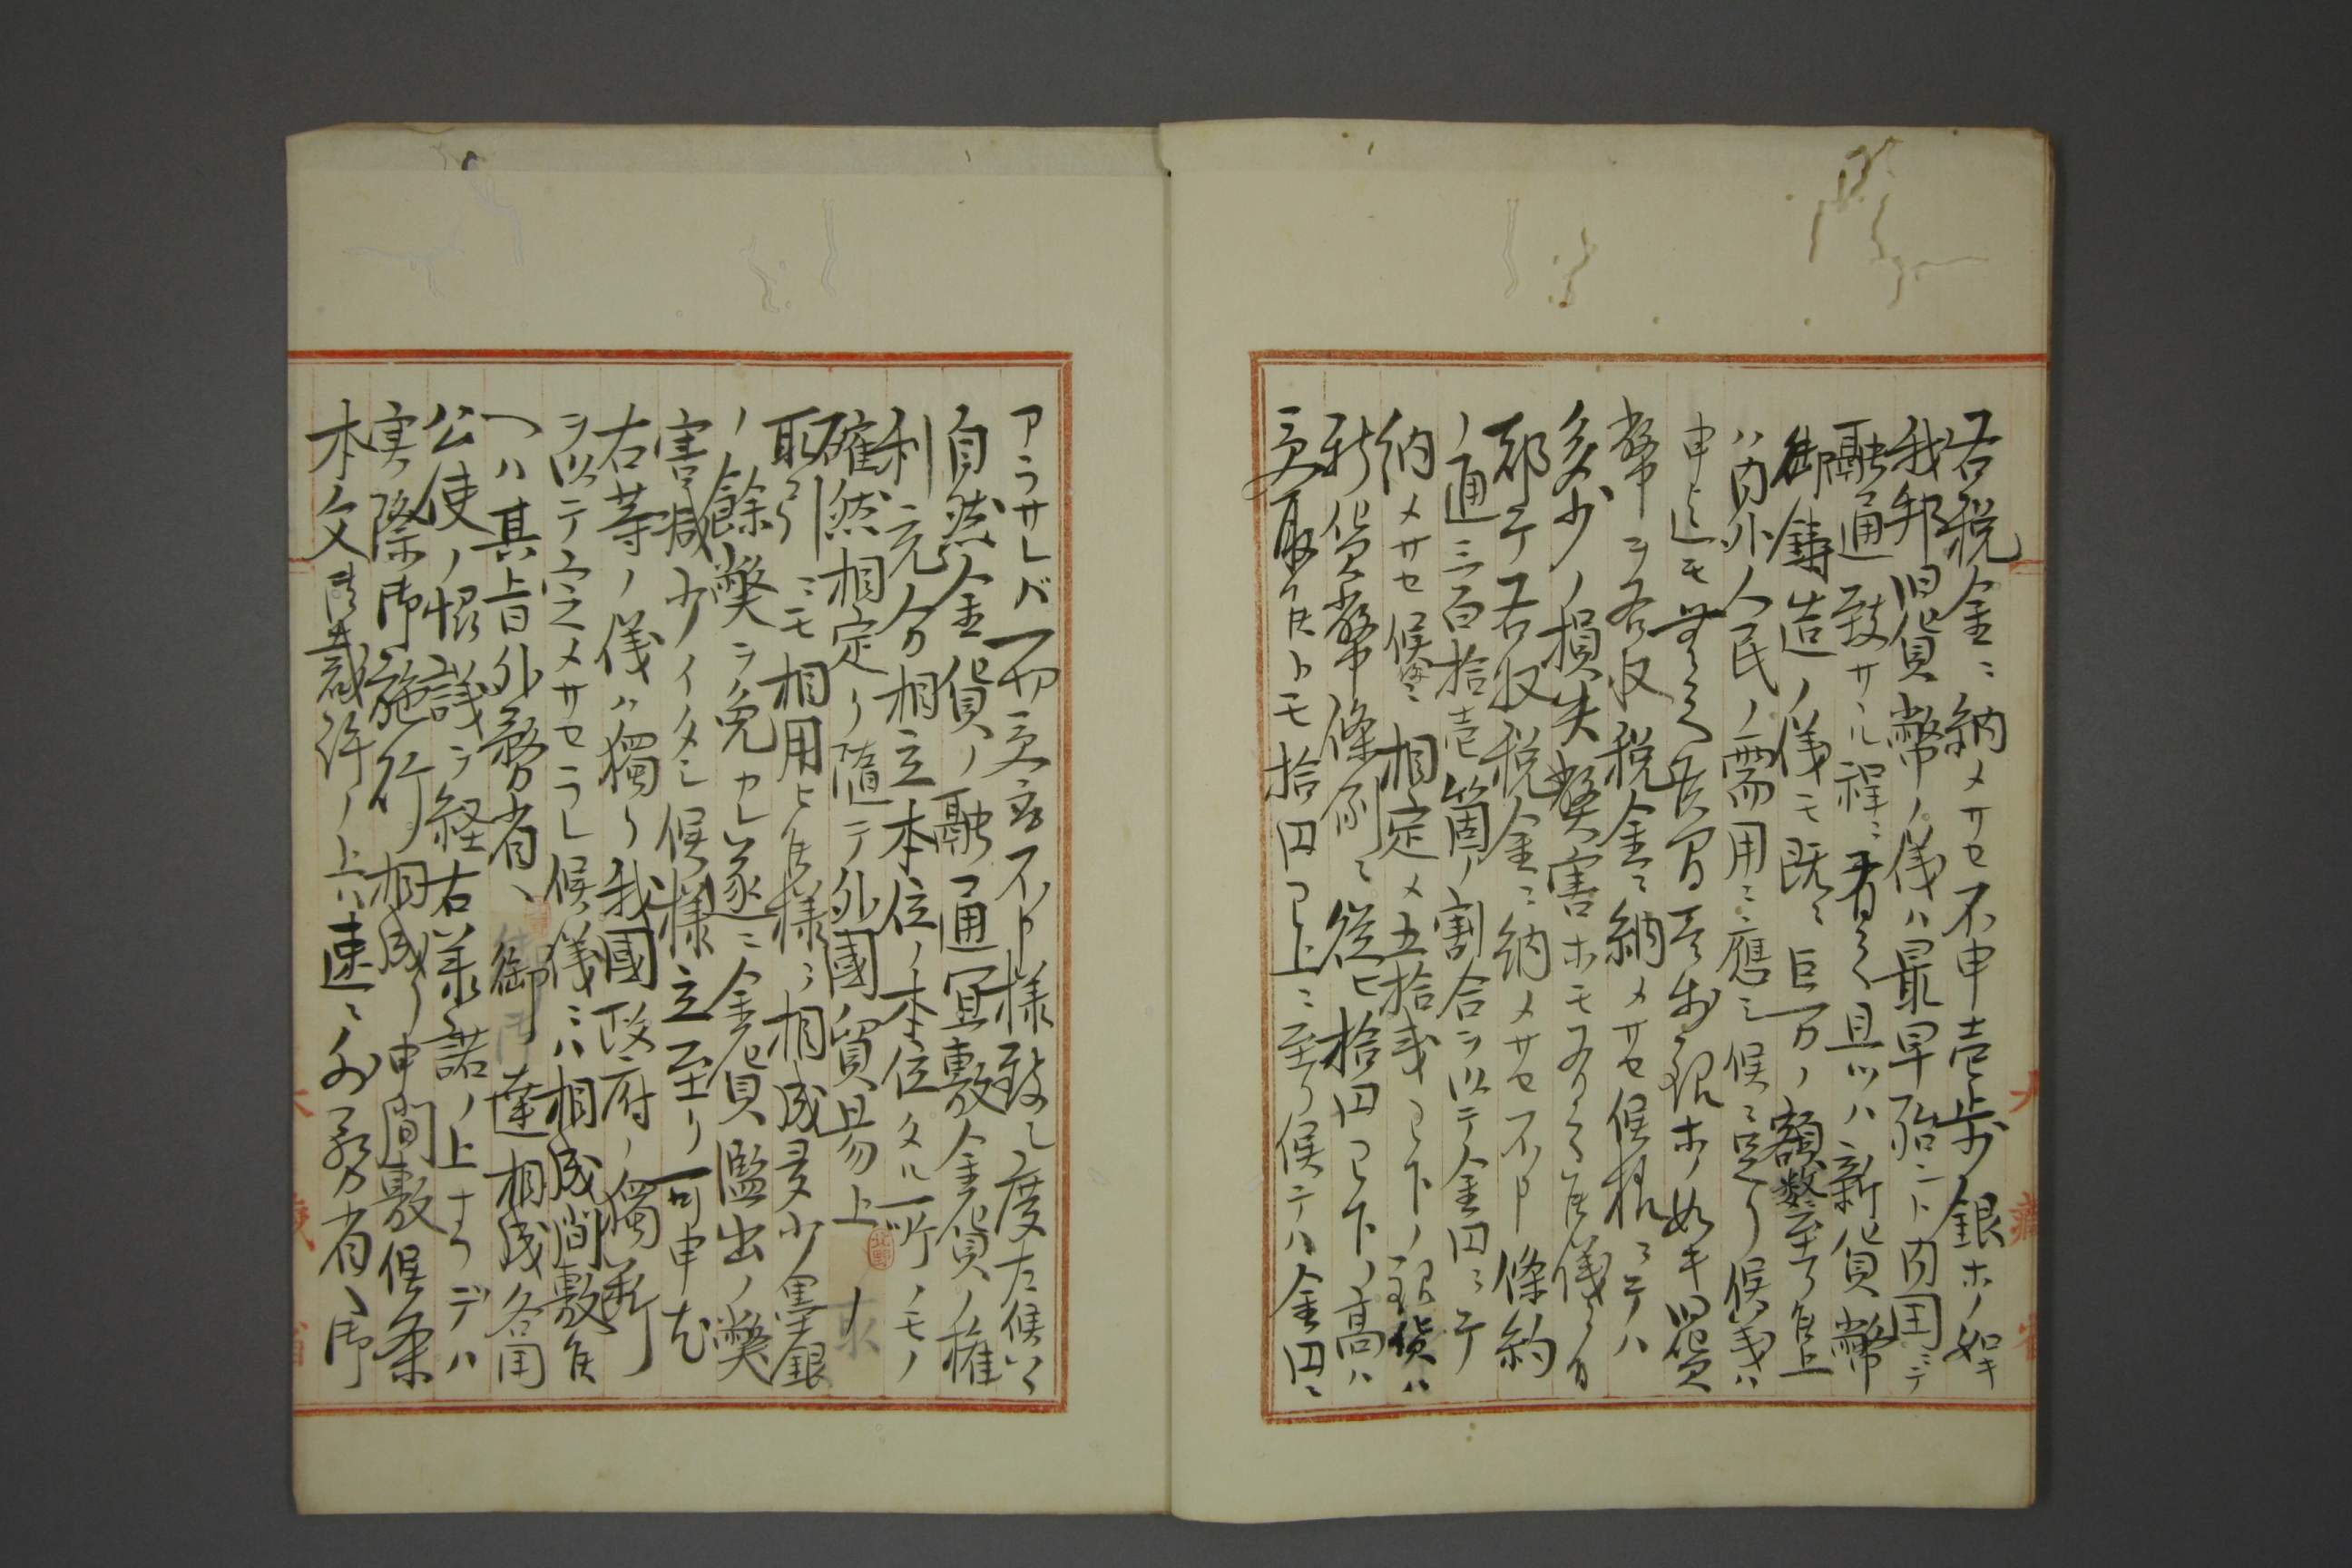 右税金ニ納メサセ不申壱歩銀ホノ如キ
我邦旧貨幣ノ儀ハ最早殆ント内国ニテ
融通致サル程ニ有之且ツハ新貨幣
御鋳造ノ儀モ既ニ巨万ノ額数ニ至リ候上
ハ内外人民ノ需用ニ應シ候ニ足リ候儀ハ
申迄モ無之候間壱歩銀ホノ如キ旧貨
幣ヲ右収税金ニ納メサセ候様ニテハ
多少ノ損失弊害ホモ有之候儀ニ付
都テ右収税金ニ納メサセ不申條約
ノ通三百拾壱箇ノ割合ヲ以テ金円ニテ
納メサセ候 相定メ五拾戋以下ノ銀貨ハ
新貨幣條例ニ從ヒ拾円以下ノ高ハ
受取候トモ拾円以上ニ至リ候テハ金円ニ
アラサレバ一切受取不申様致シ度左候ハヽ
自然金貨ノ融通宜敷金貨ノ権
利充分相立本位ノ本位タル所ノモノ
確然相定リ随テ外國貿易上ノ
取引ニモ相用ヒ候様ニ相成多少墨銀
ノ餘弊ヲ免カレ遂ニ金貨濫出ノ弊
害減少イタシ候様立至リ可申尤
右等ノ儀ハ獨リ我國政府ノ獨断
ヲ以テ定メサセラレ候儀ニハ相成間敷候
ヘハ其旨外務省ヘ御達相成各国
公使ノ協議ヲ経右様諾ノ上ナラデハ
実際御施行相成リ申間敷候条
本文御裁許ノ上ハ速ニ外務省ヘ御